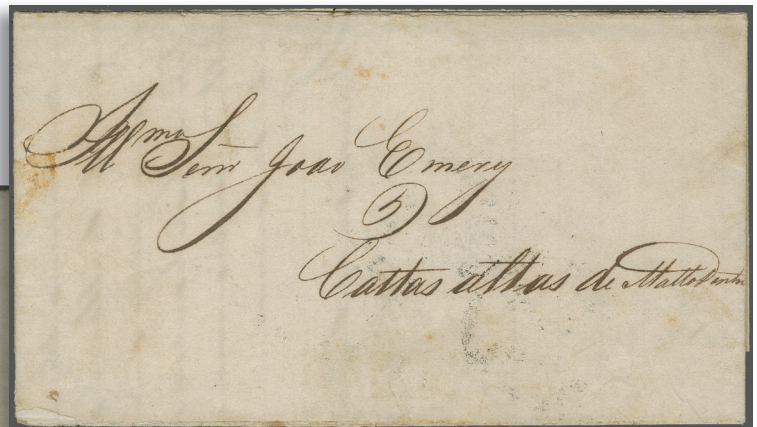 Illmo Senr Joao Emery
Cattas altas de Matto dentro